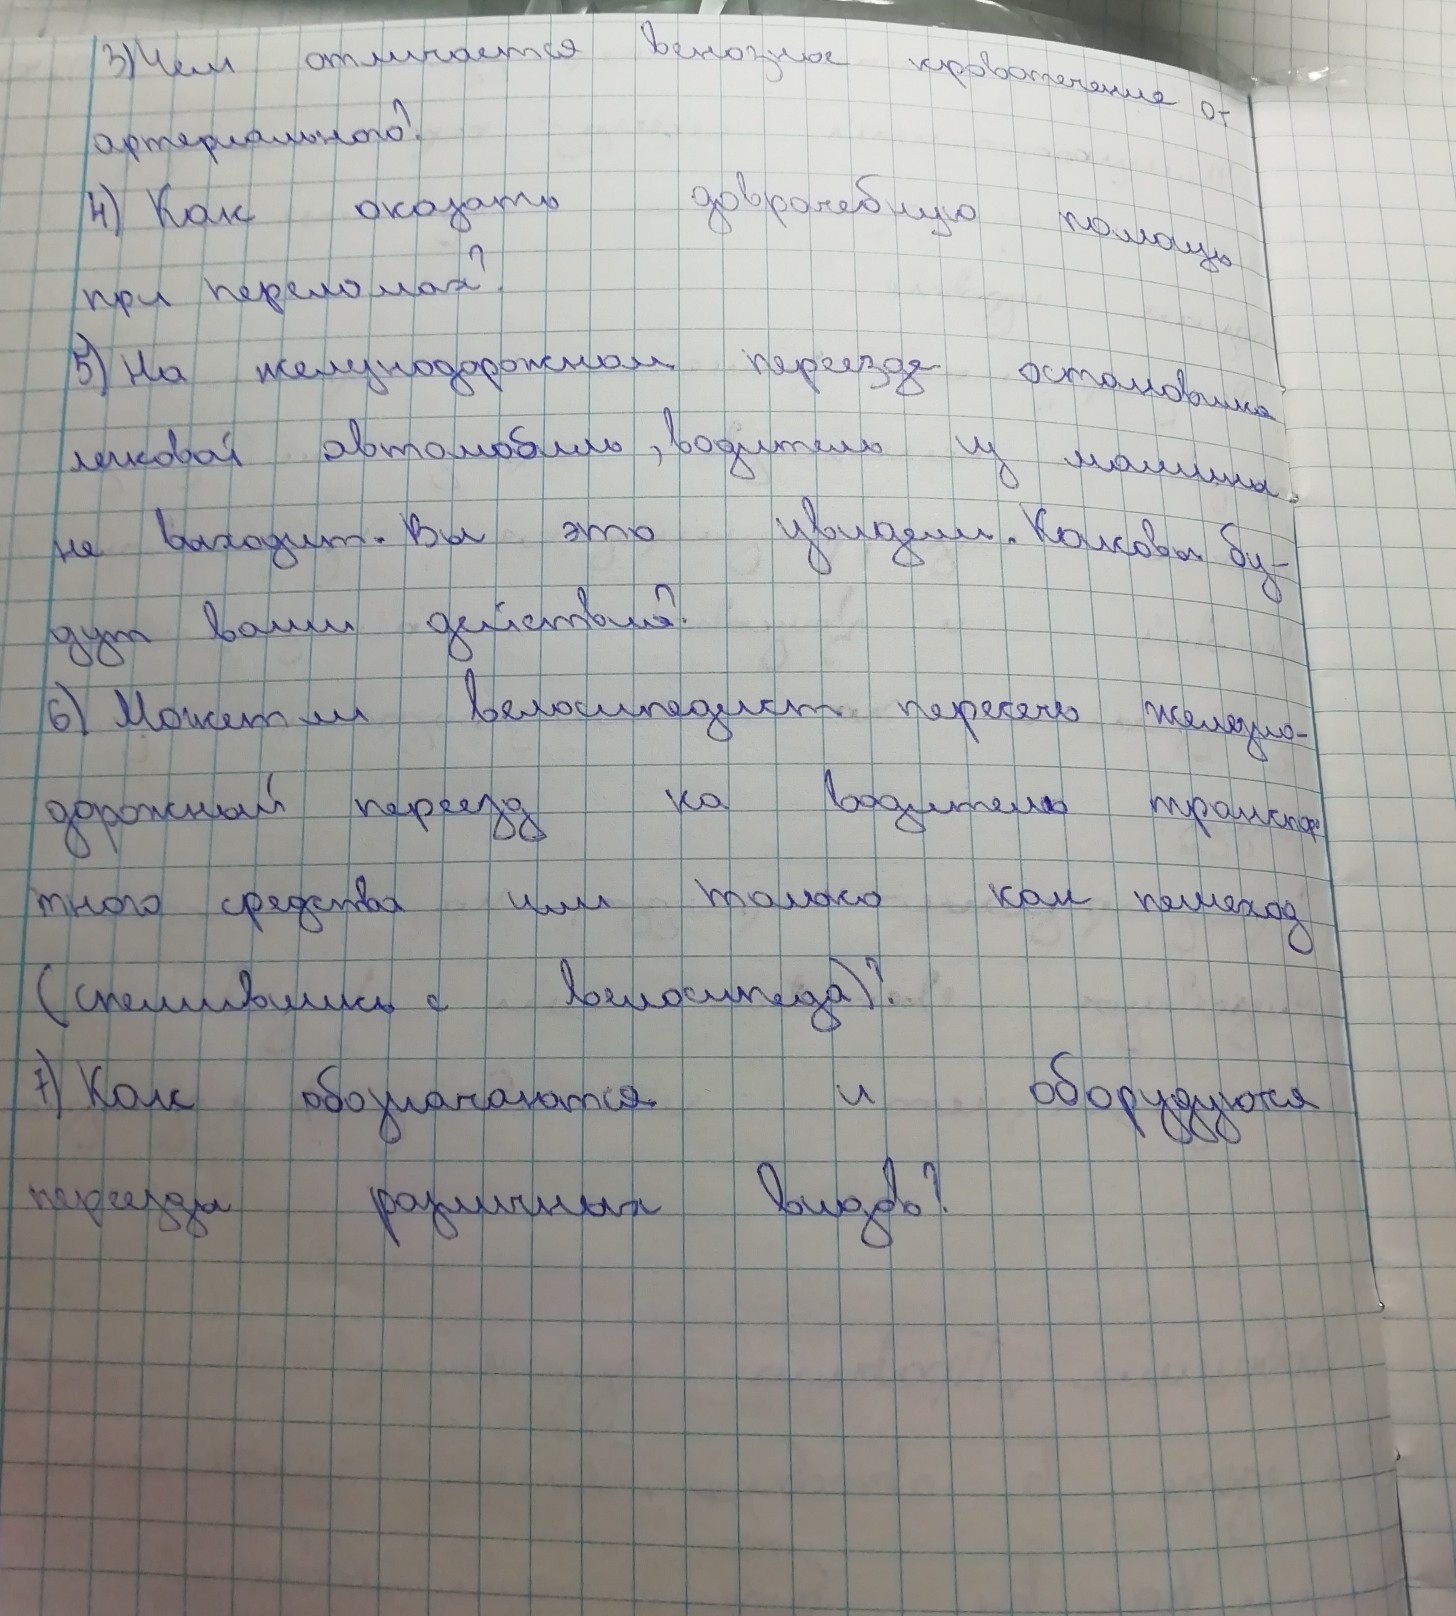 3) Чем отличается венозное кровотечение от
артериального?
4) Как оказать доврачебную помощь
при переломах?
5) На железнодорожном переезде остановился
легковой автомобиль, водитель из машины
не выходит. Вы это увидели. Каковы бу-
дут ваши действия?
6) Может ли велосипедист пересечь железно-
дорожный переезд ка водитель транспор
тного средства или только как пешеход
(спешившись с велосипеда)?
7) Как обозначаются и оборудуются
переезды различных видов?